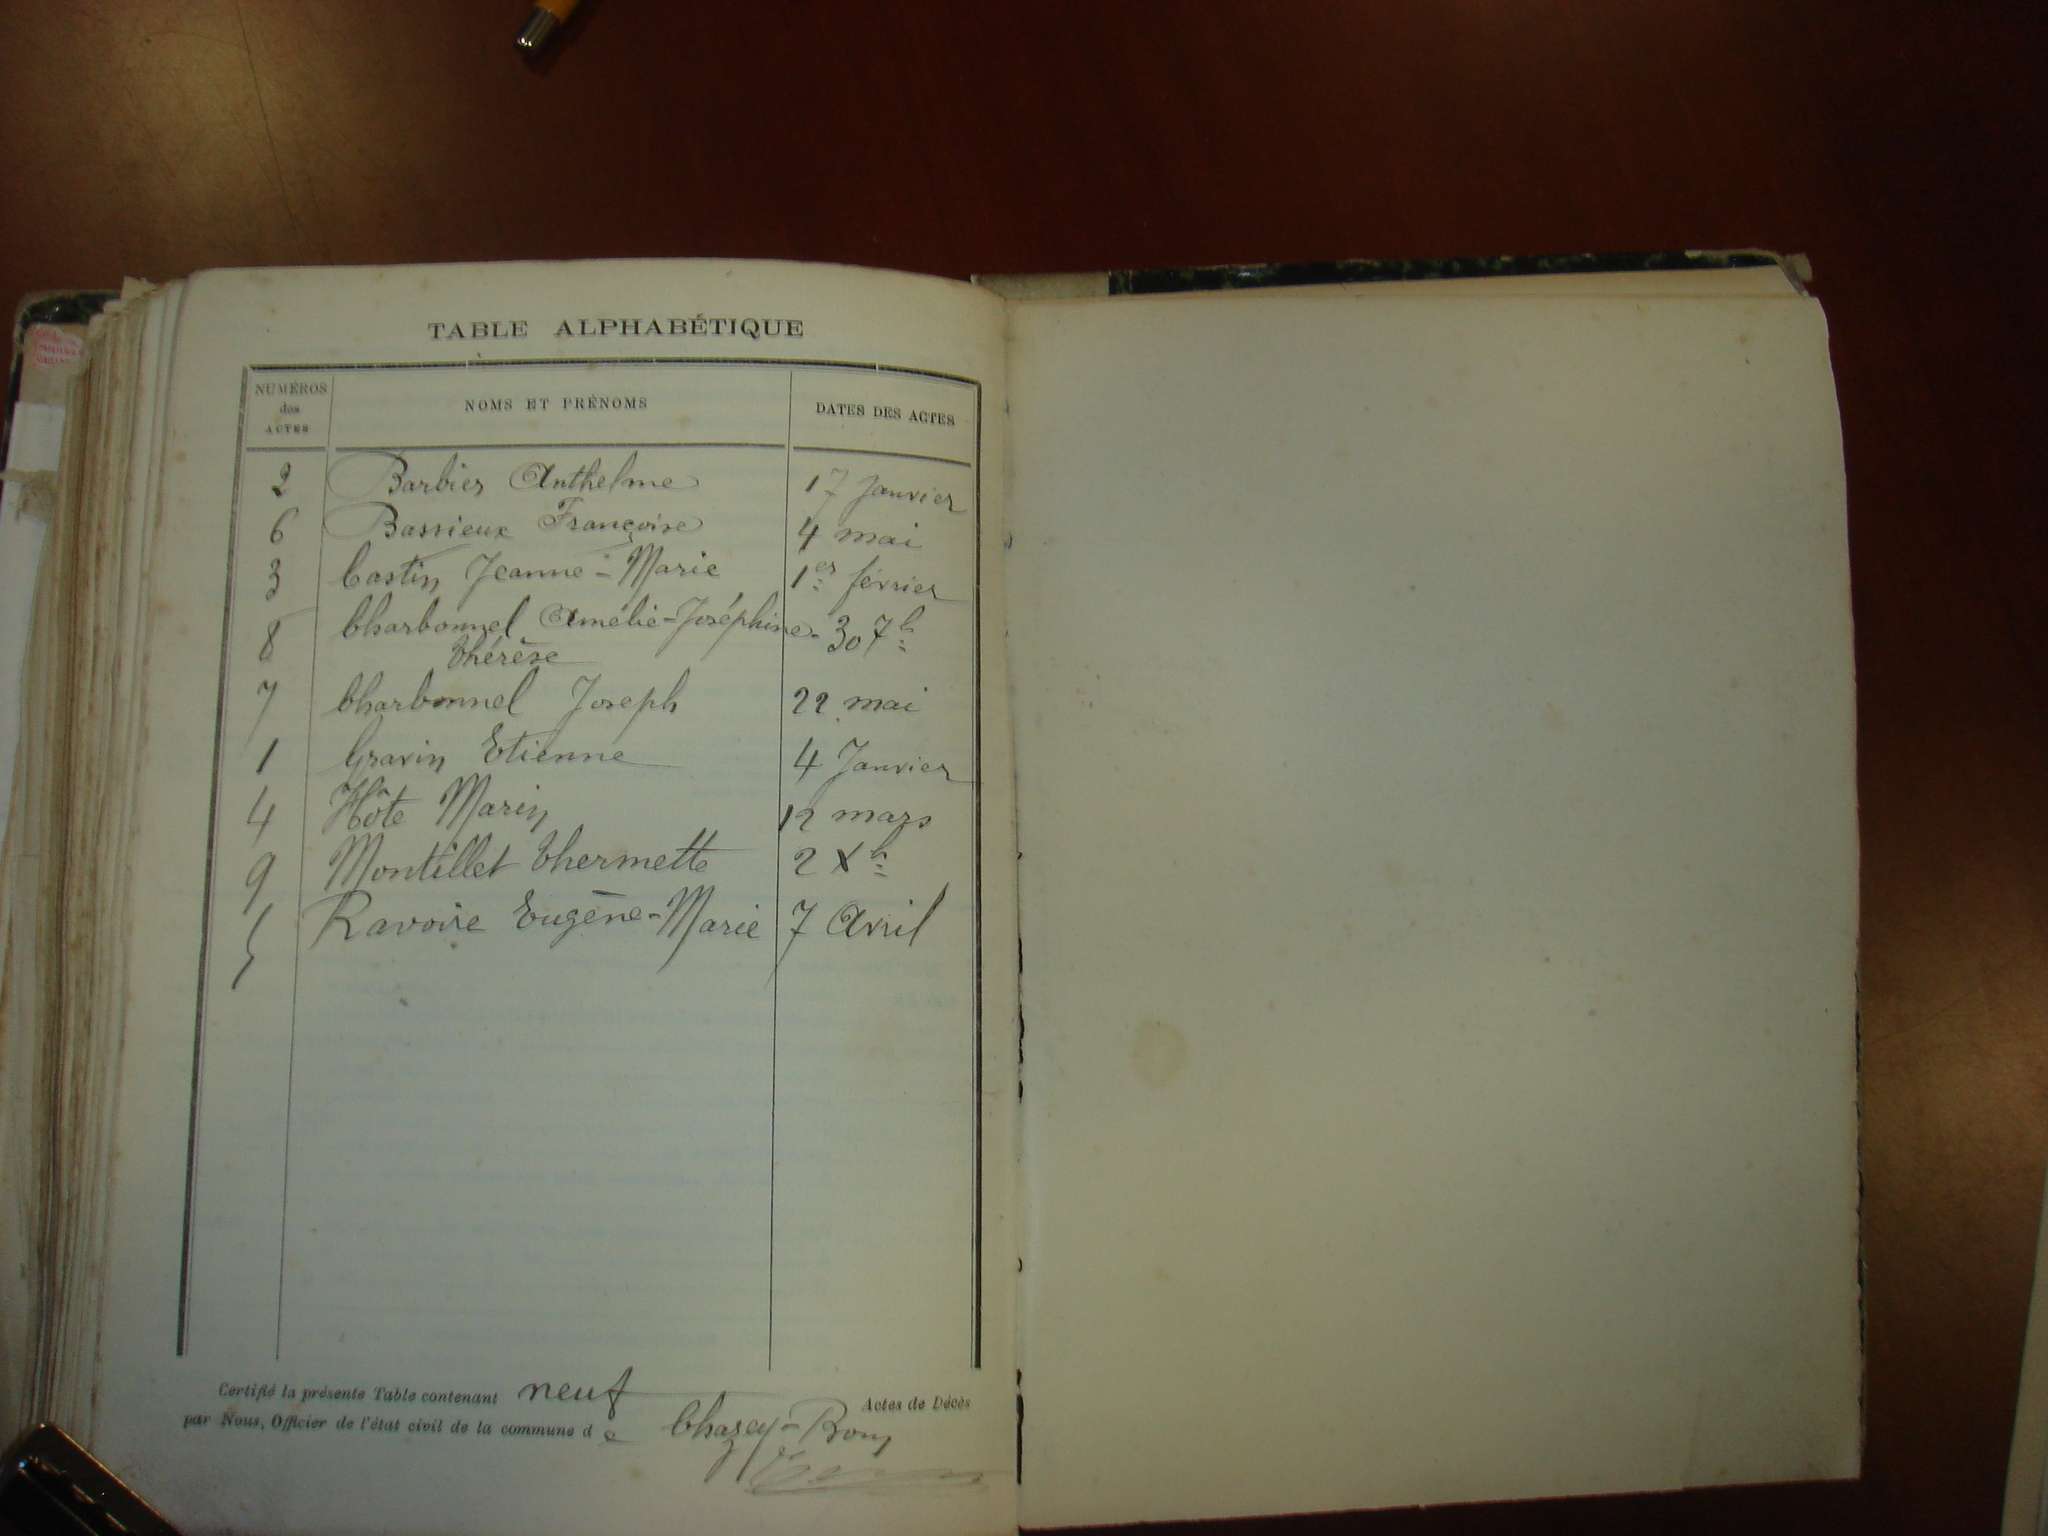 TABLE ALPHABÉTIQUE
NUMÉROS
des
ACTES
NOMS ET PRÉNOMS
DATES DES ACTES
2 Barbier Anthelme 17 Janvier
6 Bassieux Françoise 4 mai
3 Castin Jeanne-Marie 1er février
8 Charbonnel Amélie-Joséphine- 30 7b
Thérèse
7 Charbonnel Joseph 22 mai
1 Gravin Etienne 4 Janvier
4 Hôte Marin 12 mars
9 Montillet Thermette 2 Xb
5 Ravoire Eugène-Marie 7 Avril
Certifié la présente Table contenant neuf Actes de Décès
par Nous, Officier de l'état civil de la commune de Chazey-Bons